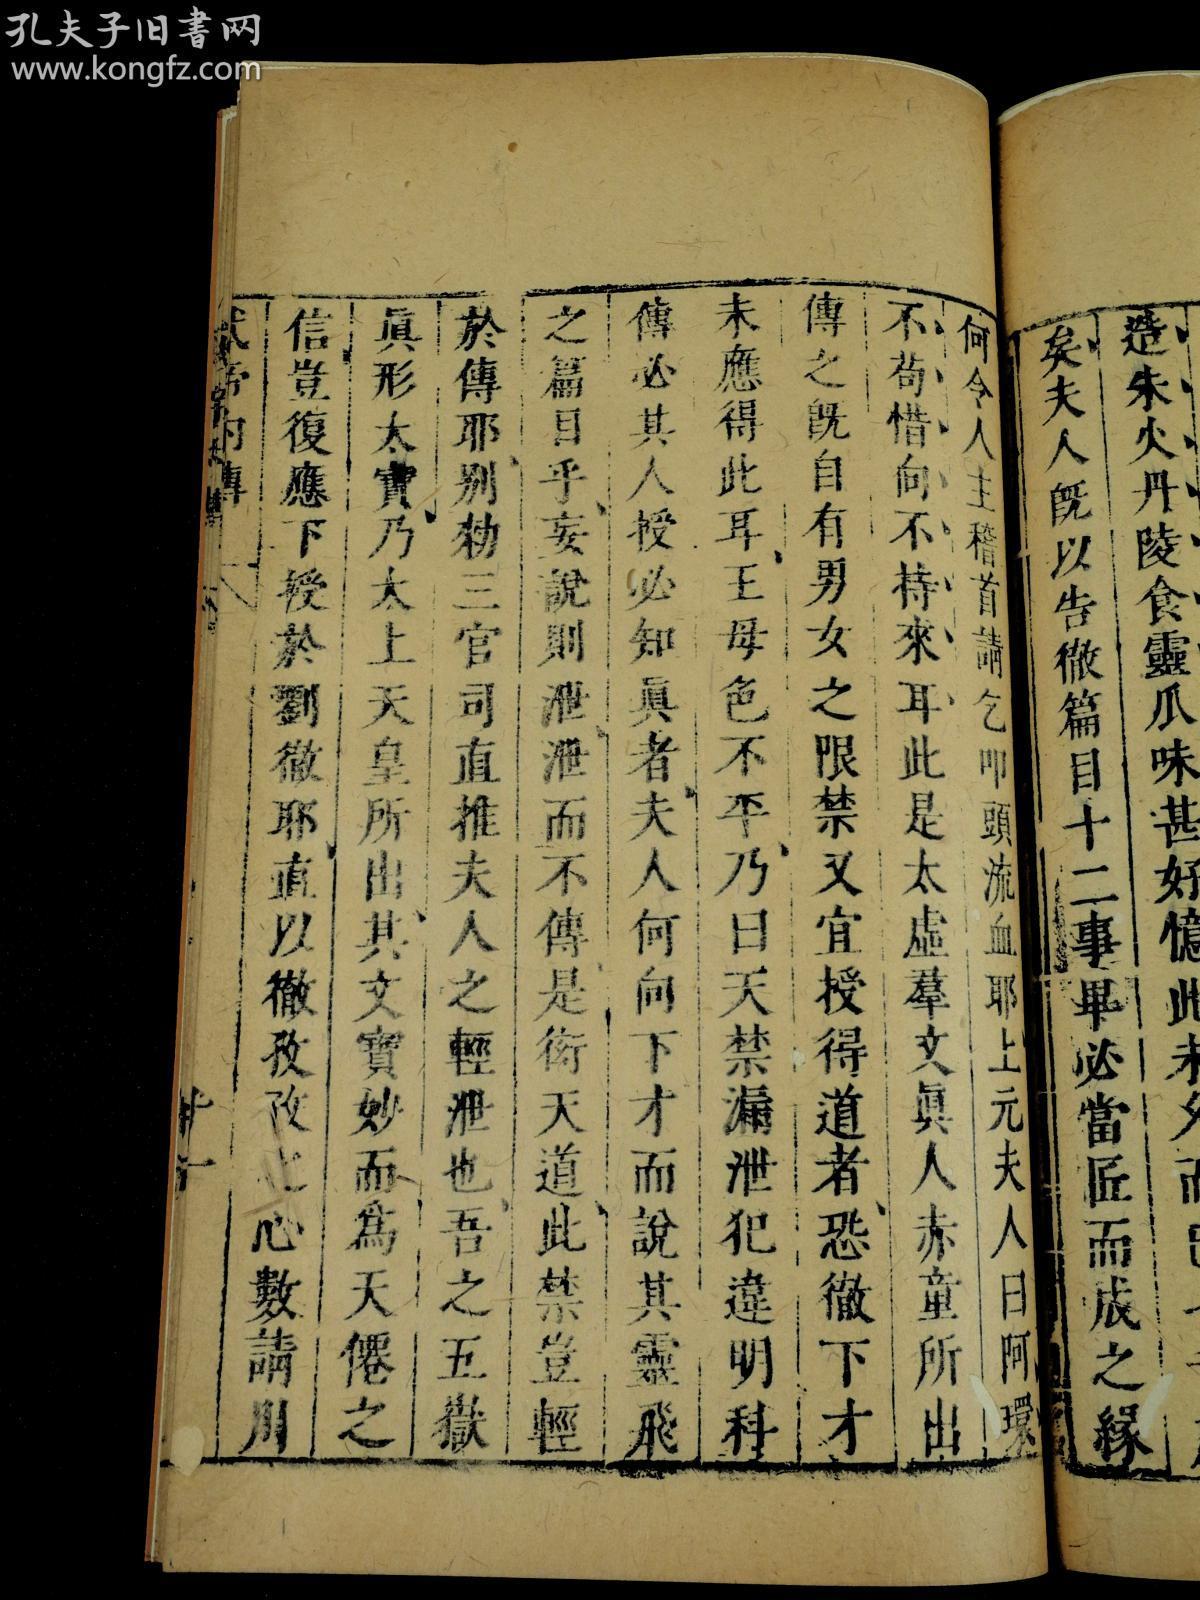 孔夫子旧書网
www.kongfz.com
造朱火丹陵食靈瓜味甚好憶此未久而已
矣夫人旣以告徹篇目十二事畢必當匠而成之緣
何令人主稽首請乞叩頭流血耶上元夫人曰阿環
不苟惜向不持來耳此是太虛羣文眞人赤童所出
傳之旣自有男女之限禁又宜授得道者恐徹下才
未應得此耳王母色不平乃曰天禁漏泄犯違明科
傳必其人授必知眞者夫人何向下才而說其靈飛
之篇目乎妄說則泄泄而不傳是衒天道此禁豈輕
於傳耶别勑三官司直推夫人之輕泄也吾之五嶽
眞形太寶乃太上天皇所出其文寶妙而爲天僊之
信豈復應下授於劉徹耶直以徹孜孜之心數請川
武帝内傳
廿一